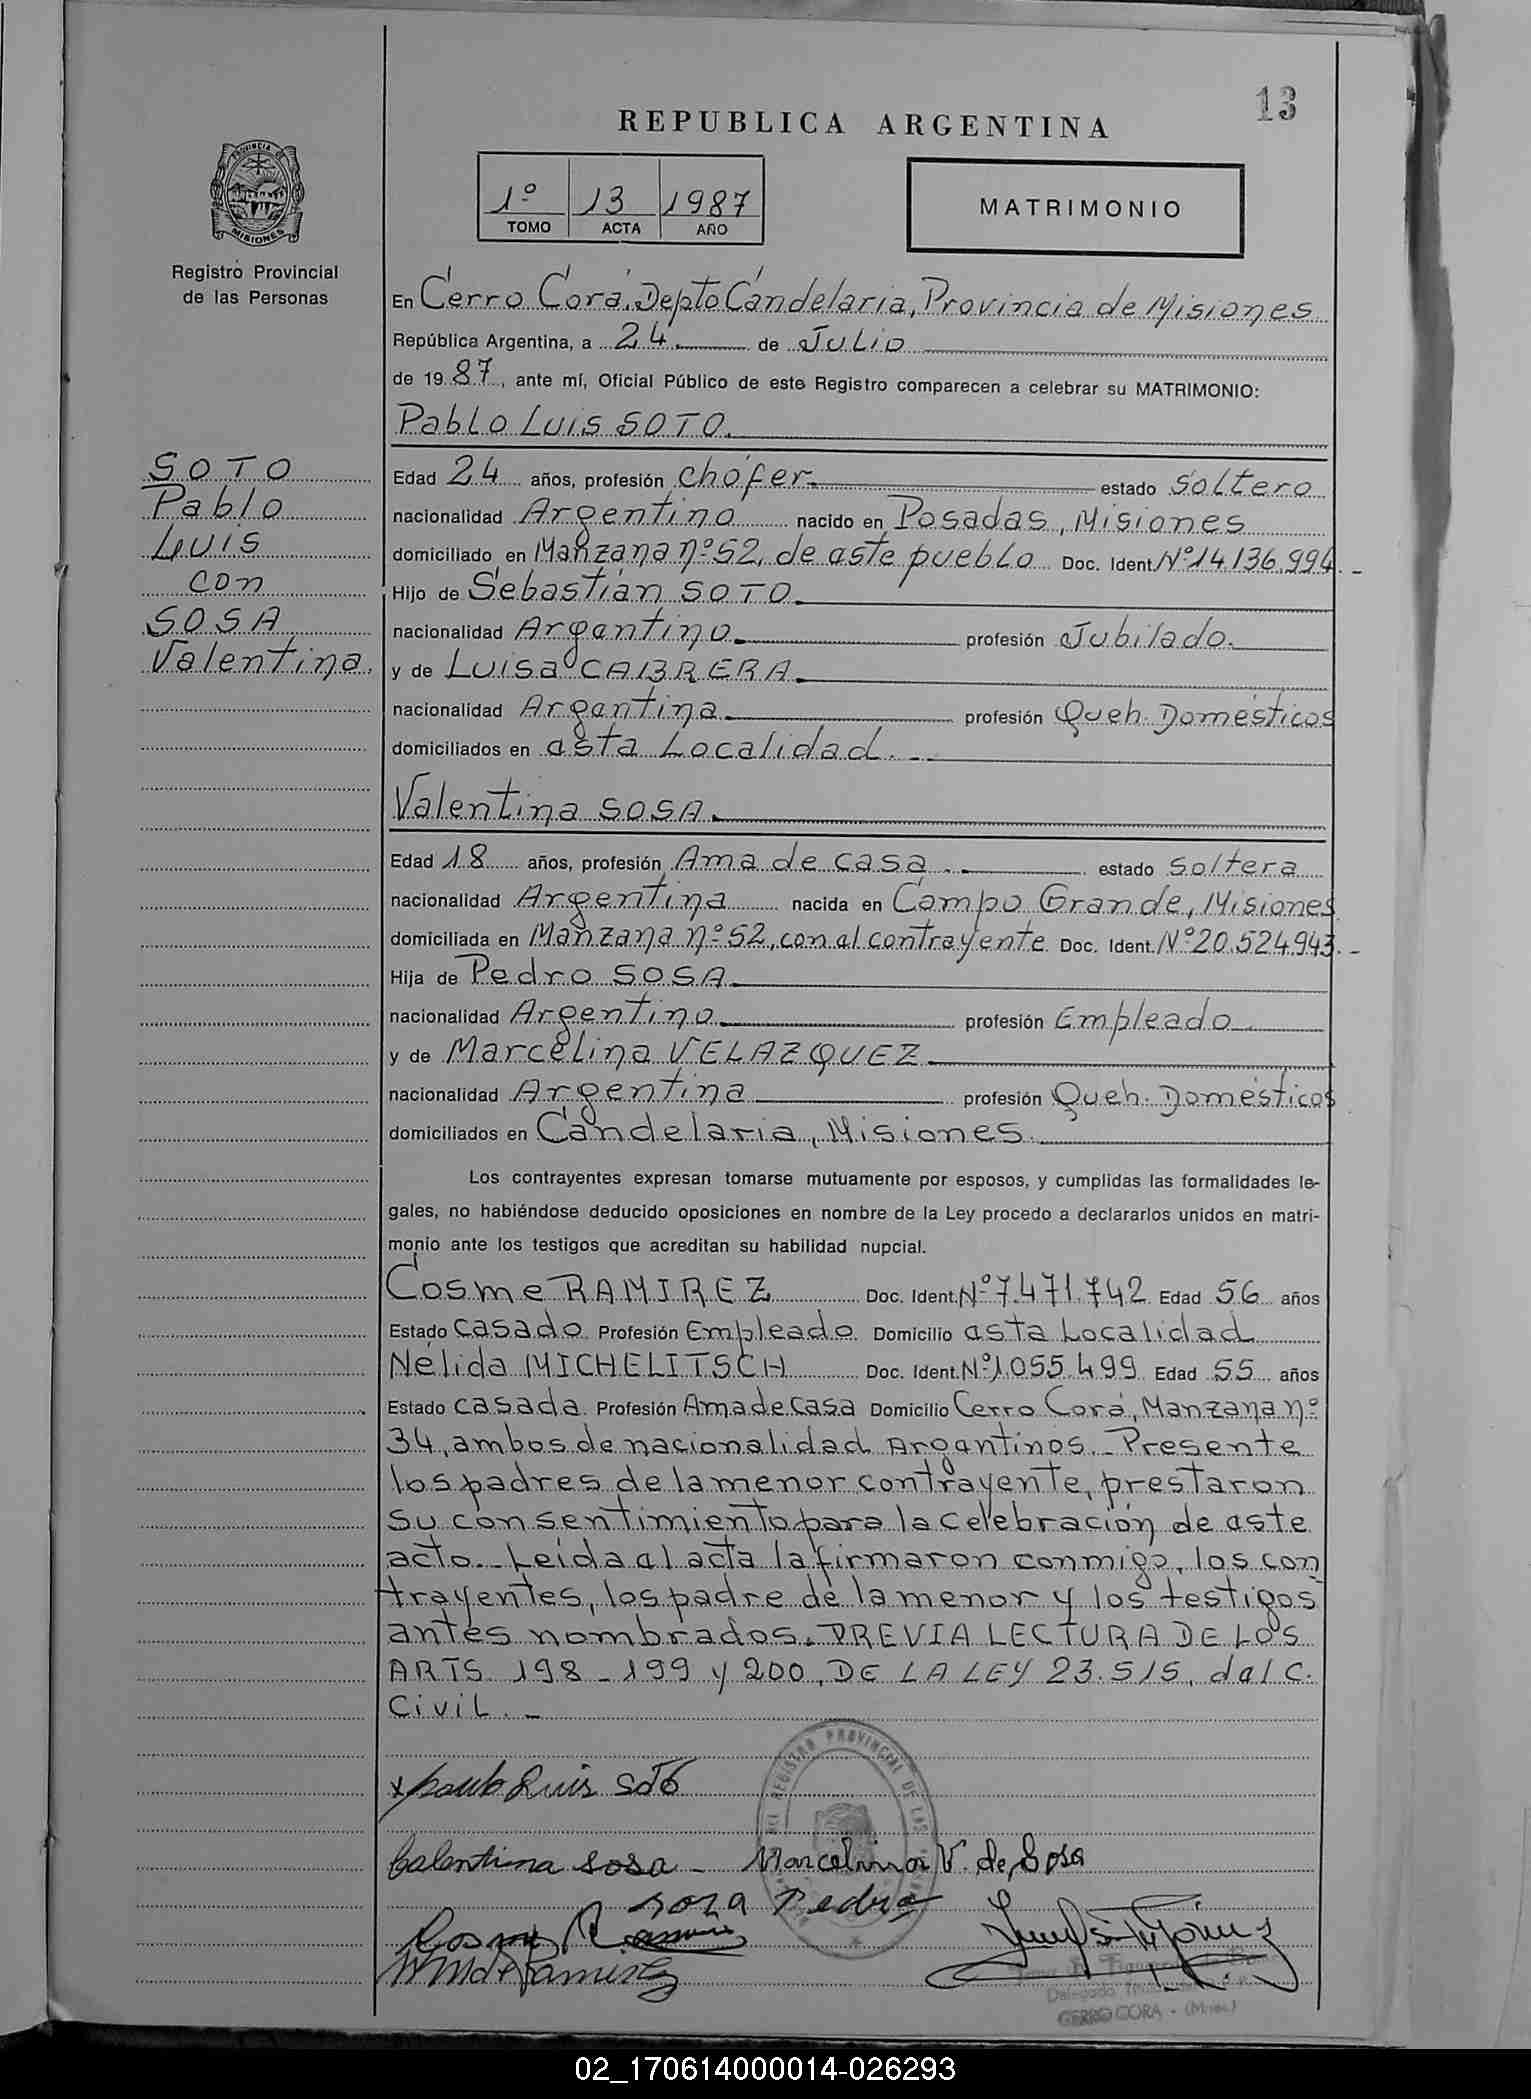 13
REPUBLICA ARGENTINA
PROVINCIA DE MISIONES
Registro Provincial
de las Personas
1º 13 1987
TOMO ACTA AÑO
MATRIMONIO
En Cerro Corá, Depto Candelaria, Provincia de Misiones
República Argentina, a 24 de Julio
de 1987, ante mí, Oficial Público de este Registro comparecen a celebrar su MATRIMONIO:
Pablo Luis SOTO.
SOTO
Pablo
Luis
con
SOSA
Valentina.
Edad 24 años, profesión chófer estado soltero
nacionalidad Argentino nacido en Posadas, Misiones
domiciliado en Manzana nº 52, de este pueblo Doc. Ident. Nº 14.136.994.-
Hijo de Sebastián SOTO
nacionalidad Argentino profesión Jubilado.
y de Luisa CABRERA
nacionalidad Argentina profesión Queh. Domésticos
domiciliados en esta Localidad.-
Valentina SOSA
Edad 18 años, profesión Ama de casa.- estado soltera
nacionalidad Argentina nacida en Campo Grande, Misiones
domiciliada en Manzana nº 52, con el contrayente Doc. Ident. Nº 20.524.943.-
Hija de Pedro SOSA
nacionalidad Argentino profesión Empleado
y de Marcelina VELAZQUEZ
nacionalidad Argentina profesión Queh. Domésticos
domiciliados en Candelaria, Misiones.
Los contrayentes expresan tomarse mutuamente por esposos, y cumplidas las formalidades le-
gales, no habiéndose deducido oposiciones en nombre de la Ley procedo a declararlos unidos en matri-
monio ante los testigos que acreditan su habilidad nupcial.
Cosme RAMIREZ Doc. Ident. Nº 7.471.742 Edad 56 años
Estado casado Profesión Empleado Domicilio esta Localidad
Nélida MICHELITSCH Doc. Ident. Nº 1.055.499 Edad 55 años
Estado casada Profesión Ama de Casa Domicilio Cerro Corá, Manzana nº
34, ambos de nacionalidad Argentinos.- Presente
los padres de la menor contrayente, prestaron
su consentimiento para la celebración de este
acto.- Leida el acta la firmaron conmigo, los con
trayentes, los padre de la menor y los testigos
antes nombrados. PREVIA LECTURA DE LOS
ARTS. 198 - 199 y 200, DE LA LEY 23.515, del C.
Civil.-
x Pablo Luis Soto
Valentina Sosa - Marcelina V. de Sosa
REGISTRO PROVINCIAL DE LAS
Sosa Pedro
Cosme Ramirez
CERRO CORA - (Mnes.)
02_170614000014-026293